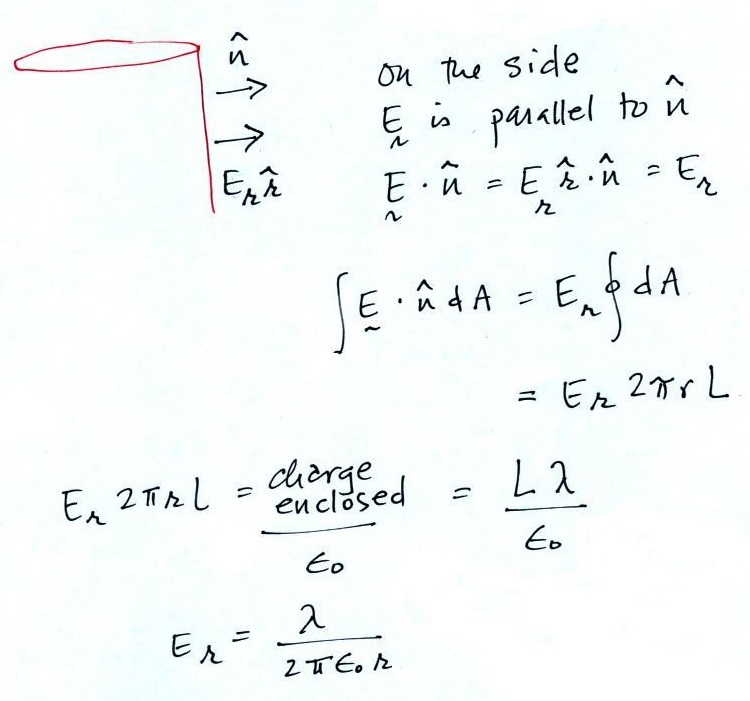 n̂
on the side
E is parallel to n̂
E_r r̂
E · n̂ = E_r r̂ · n̂ = E_r
∫ E · n̂ dA = E_r ∮ dA
= E_r 2πr L
E_r 2πr L = charge enclosed / ε₀ = Lλ / ε₀
E_r = λ / 2πε₀ r